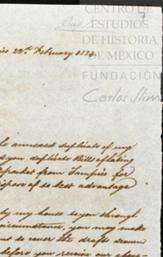 CENTRO DE
ESTUDIOS
DE HISTORIA
DE MÉXICO
FUNDACIÓN
Carlos Slim
7
22d. February 1834.
annexed duplicate of my
you duplicate Bills of lading
from Tampico for
dispose of to best advantage
by my house to you through
circumstance, you may make
to cover the drafts drawn
before you receive our above